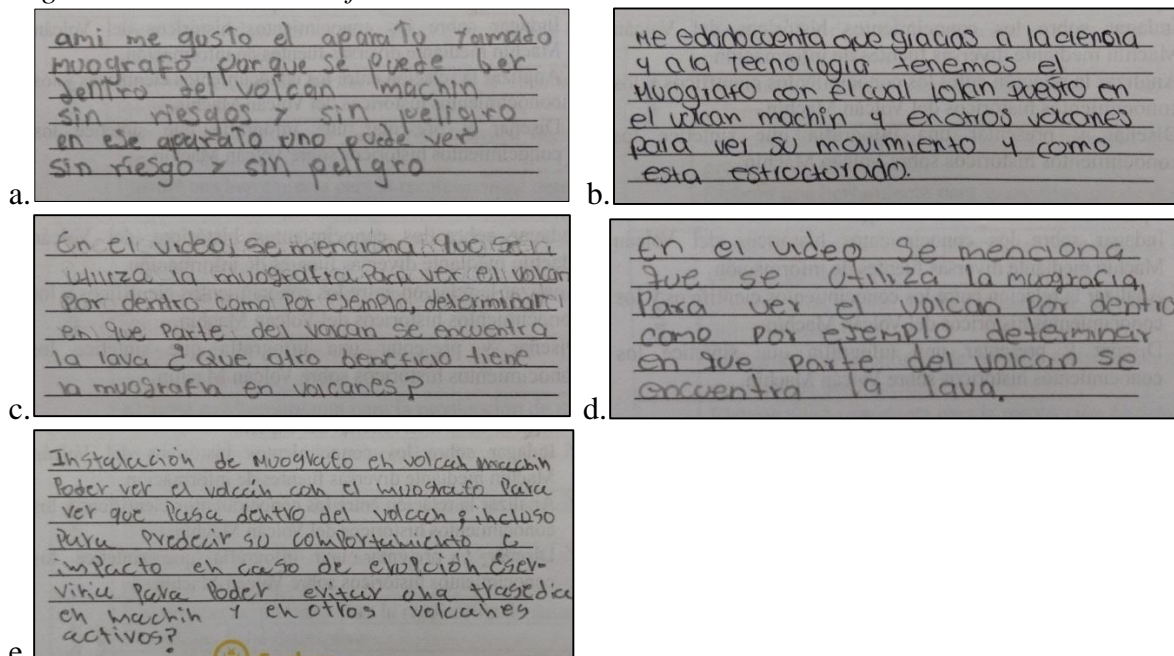 a.
ami me gusto el aparaTo yamado
muografo porque se puede ber
dentro del volcan machin
sin riesgos y sin peligro
en ese aparaTo uno puede ver
sin riesgo y sin peligro
b.
Me edadocuenta que gracias a laciencia
y ala Tecnologia tenemos el
Muografo con el cual lokan puesto en
el volcan machin y enotros volcanes
para ver su movimiento y como
esta estructurado.
c.
En el video, se menciona que se
utiliza la muografia para ver el volcan
Por dentro como por ejemplo, determinar
en que parte del volcan se encuentra
la lava ¿ Que otro beneficio tiene
la muografia en volcanes?
d.
En el video se menciona
que se utiliza la muografia,
Para ver el volcan por dentro
como por ejemplo determinar
en que parte del volcan se
encuentra la lava.
e.
Instalación de Muografo en volcan machin
Poder ver el volcán con el muografo Para
ver que Pasa dentro del volcan, incluso
Para Predecir su comportamiento e
impacto en caso de erupción ¿ser-
viria Para Poder evitar una tragedia
en machin y en otros volcanes
activos?